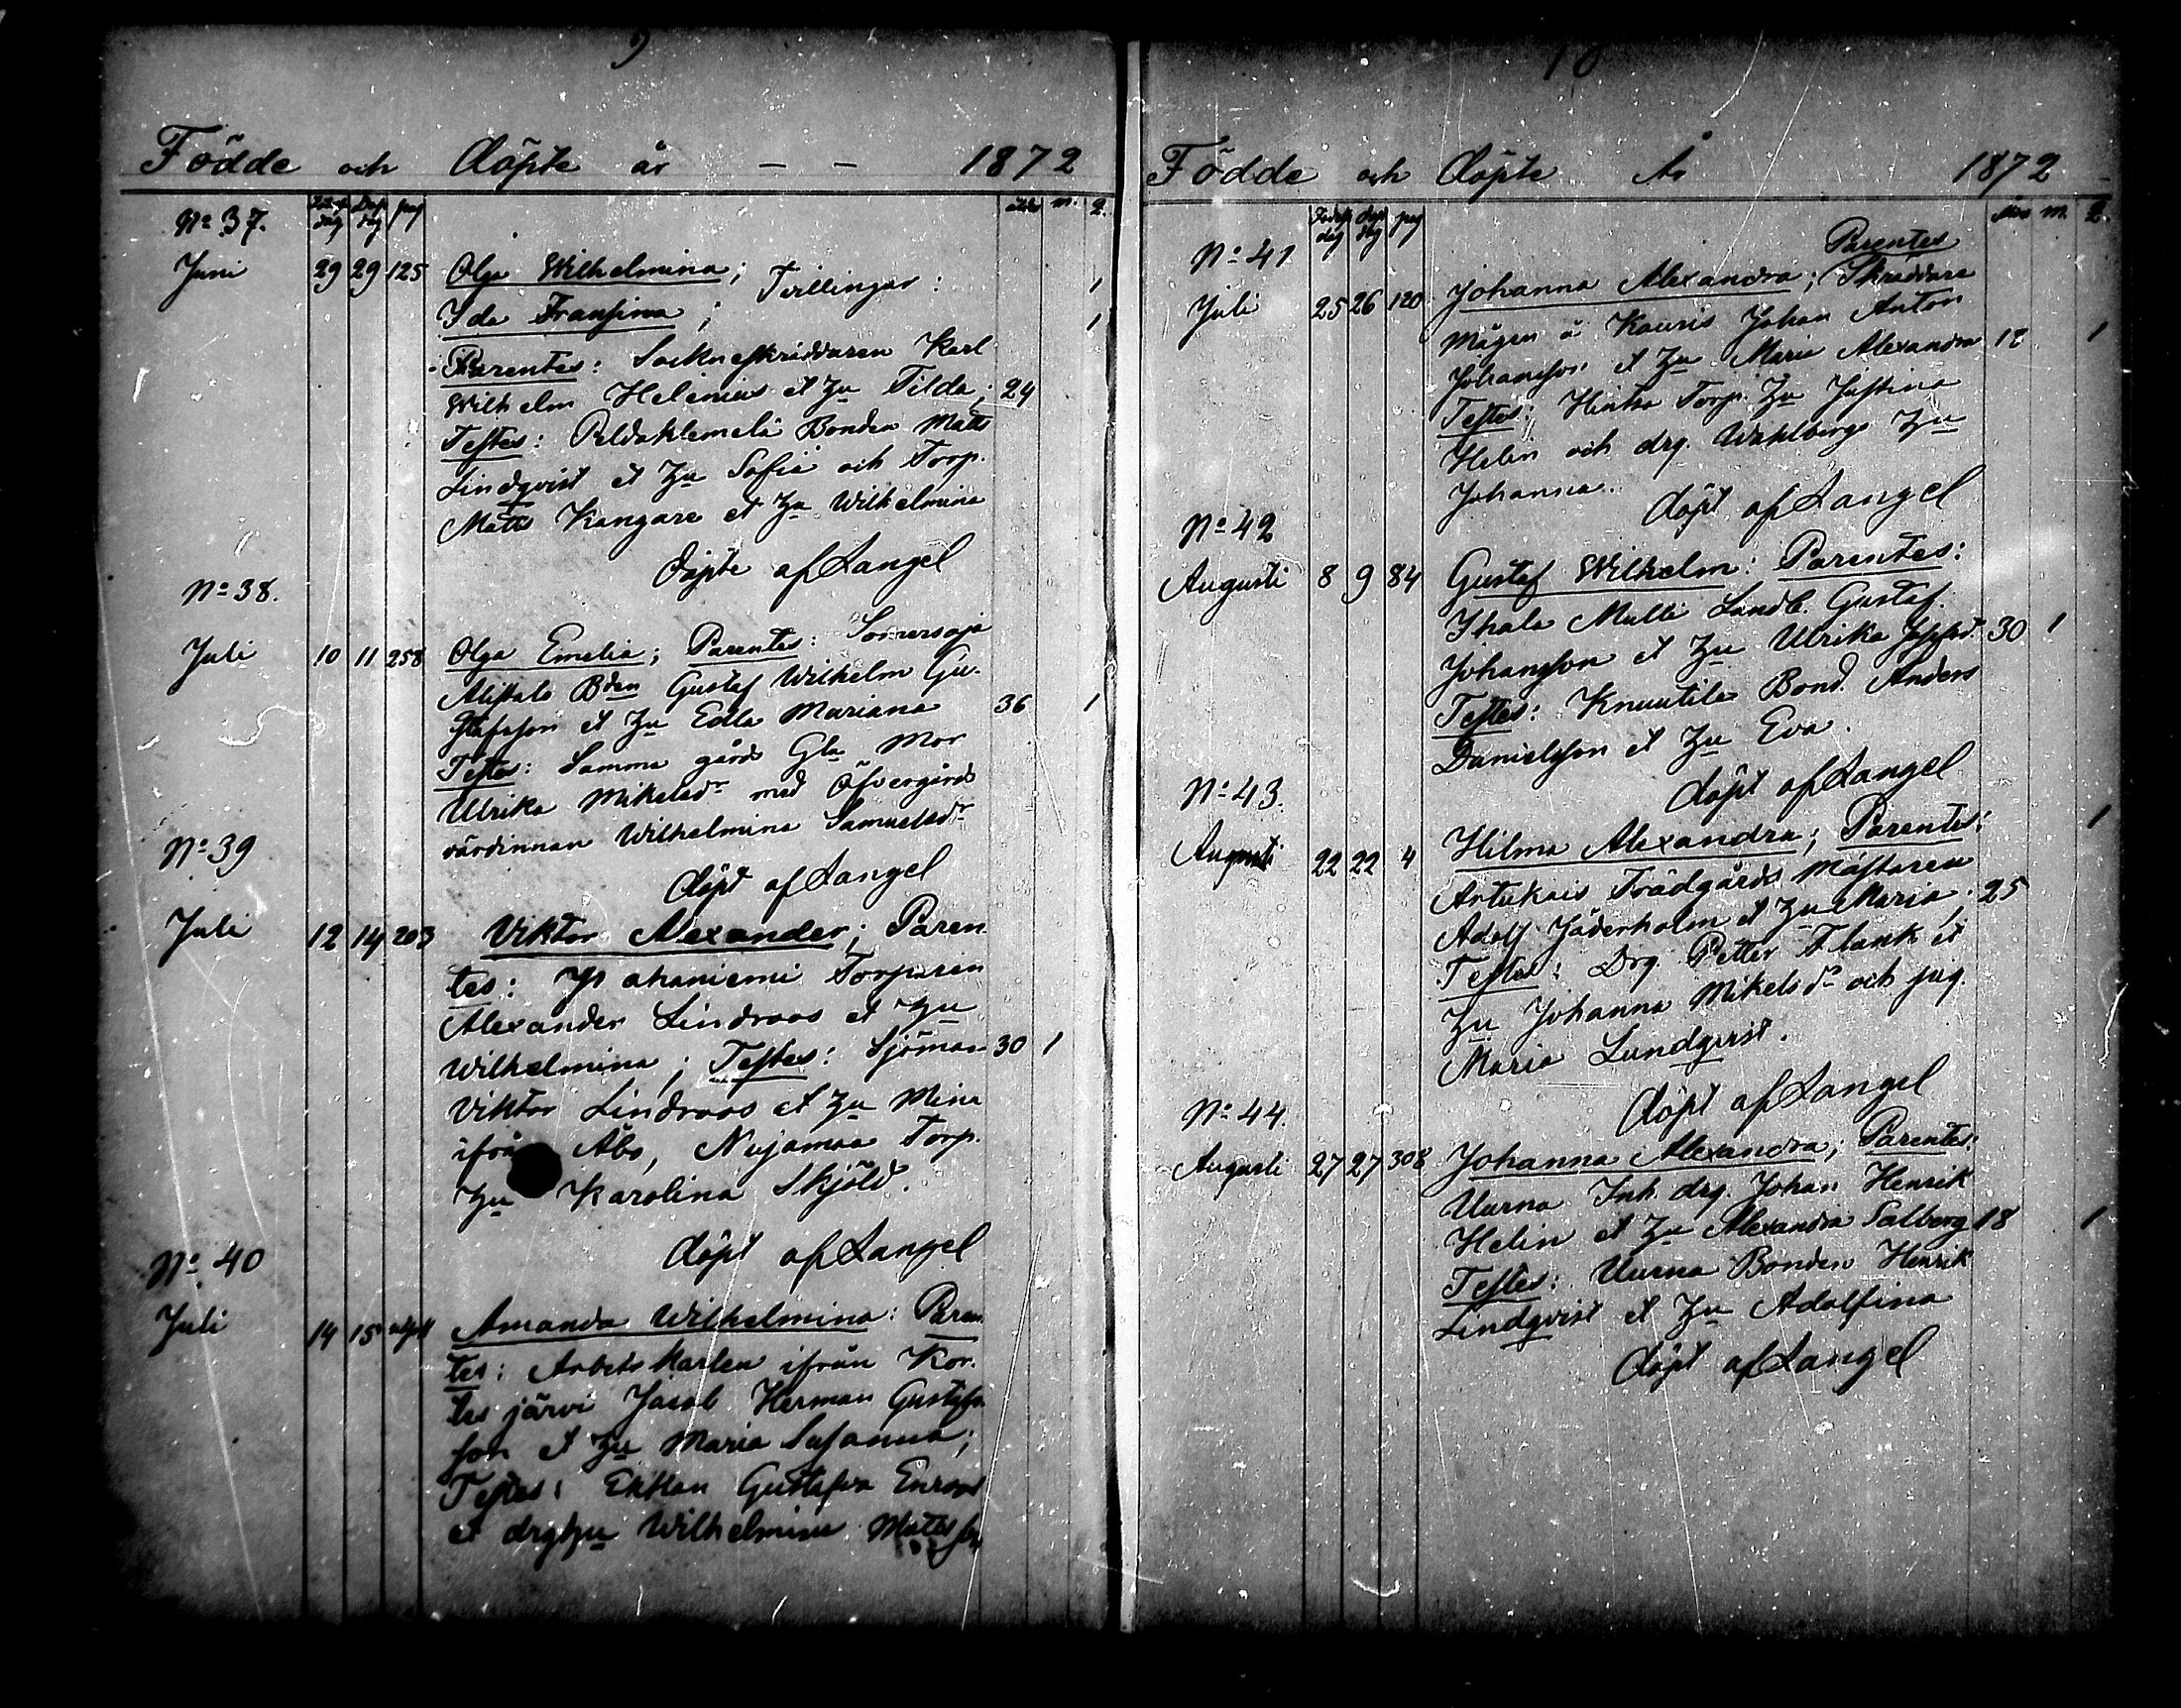 9
Födde och döpte år - - 1872
No 37. Födelse dag Dop dag pag Ålder m. q.
Juni 29 29 125 Olga Wilhelmina;
Ida Fransina; Tvillingar: 1
1
Parentes: Sockneskräddaren Karl
Wilhelm Helenius et Hu Tilda; 24
Testes: Peldoklemelä Bonden Matts
Lindqvist et Hu Sofia och Torp.
Matts Kangare et Hu Wilhelmina
döpte af Langel
No 38.
Juli 10 11 258 Olga Emelia; Parentes: Somersoja
Alistalo Bden Gustaf Wilhelm Gu-
stafsson et Hu Edla Mariana 36 1
Testes: Samma gårds Gla Mor
Ulrika Mikelsdr med Öfvergårds
värdinnan Wilhelmina Samuelsdr
döpt af Langel
No 39
Juli 12 14 203 Viktor Alexander; Paren
tes: Torparen
Alexander Lindroos et Hu
Wilhelmina; Testes: Sjöman 30 1
Viktor Lindroos et Hu Mina
ifrån Åbo, Nujamaa Torp.
Hu Karolina Skjöld.
döpt af Langel
No 40
Juli 14 15 Amanda Wilhelmina: Paren
tes: Arbets Karlen ifrån Kor-
tes järvi Jacob Herman Gustafs
son et Hu Maria Susanna;
Testes: Enkan Gustafva Enroos
et drg hu Wilhelmina Matts
10
Födde och döpte År 1872
Födelse dag dop dag pag Mor m. q.
No 41 Parentes
Juli 25 26 120 Johanna Alexandra; Skräddare
Mågen å Kauris Johan Anton
Johansson et Hu Maria Alexandra 1
Testes: Hintsa Torp. Hu Justina
Helin och drg. Wahlbergs Hu
Johanna.
döpt af Langel
No 42
Augusti 8 9 84 Gustaf Wilhelm: Parentes:
Ihala Mulli Landb. Gustaf
Johansson et Hu Ulrika 30 1
Testes: Knuutila Bond. Anders
Danielsson et Hu Eva.
döpt af Langel
No 43.
Augusti 22 22 4 Hilma Alexandra; Parentes: 1
Artukais Trädgårds Mästaren
Adolf Jäderholm et Hu Maria; 25
Testes: Drg. Petter Flank et
Hu Johanna Mikelsdr och pig.
Maria Lundqvist.
döpt af Langel
No 44.
Augusti 27 27 308 Johanna Alexandra; Parentes:
Uurna Inh. drg. Johan Henrik
Helin et Hu Alexandra Salberg 18 1
Testes: Uurna Bonden Henrik
Lindqvist et Hu Adolfina
döpt af Langel